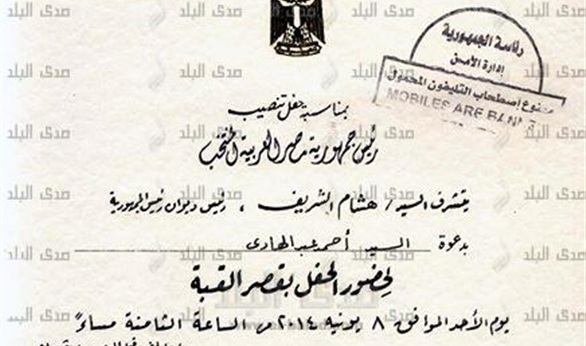 رئاسة الجمهورية
إدارة الأمن
ممنوع إصطحاب التليفون المحمول
MOBILES ARE BANN
بمناسبة حفل تنصيب
رئيس جمهورية مصر العربية المنتخب
يتشرف السيد/ هشام الشريف ، رئيس ديوان رئيس الجمهورية
بدعوة السيد أحمد عبدالهادى
لحضور الحفل بقصر القبة
يوم الأحد الموافق ٨ يونيه ٢٠١٤م، الساعة الثامنة مساءً
صدى البلد